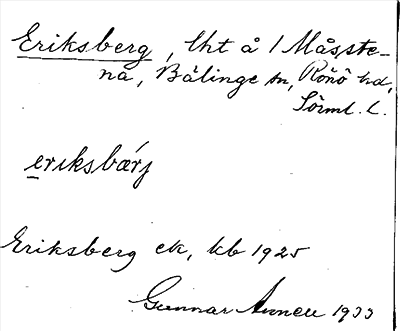 Eriksberg, lht å 1 Måsste-
na, Bälinge sn, Rönö hd,
Sörml. l.
eriksbærj
Eriksberg ek, kb 1925
Gunnar 1933